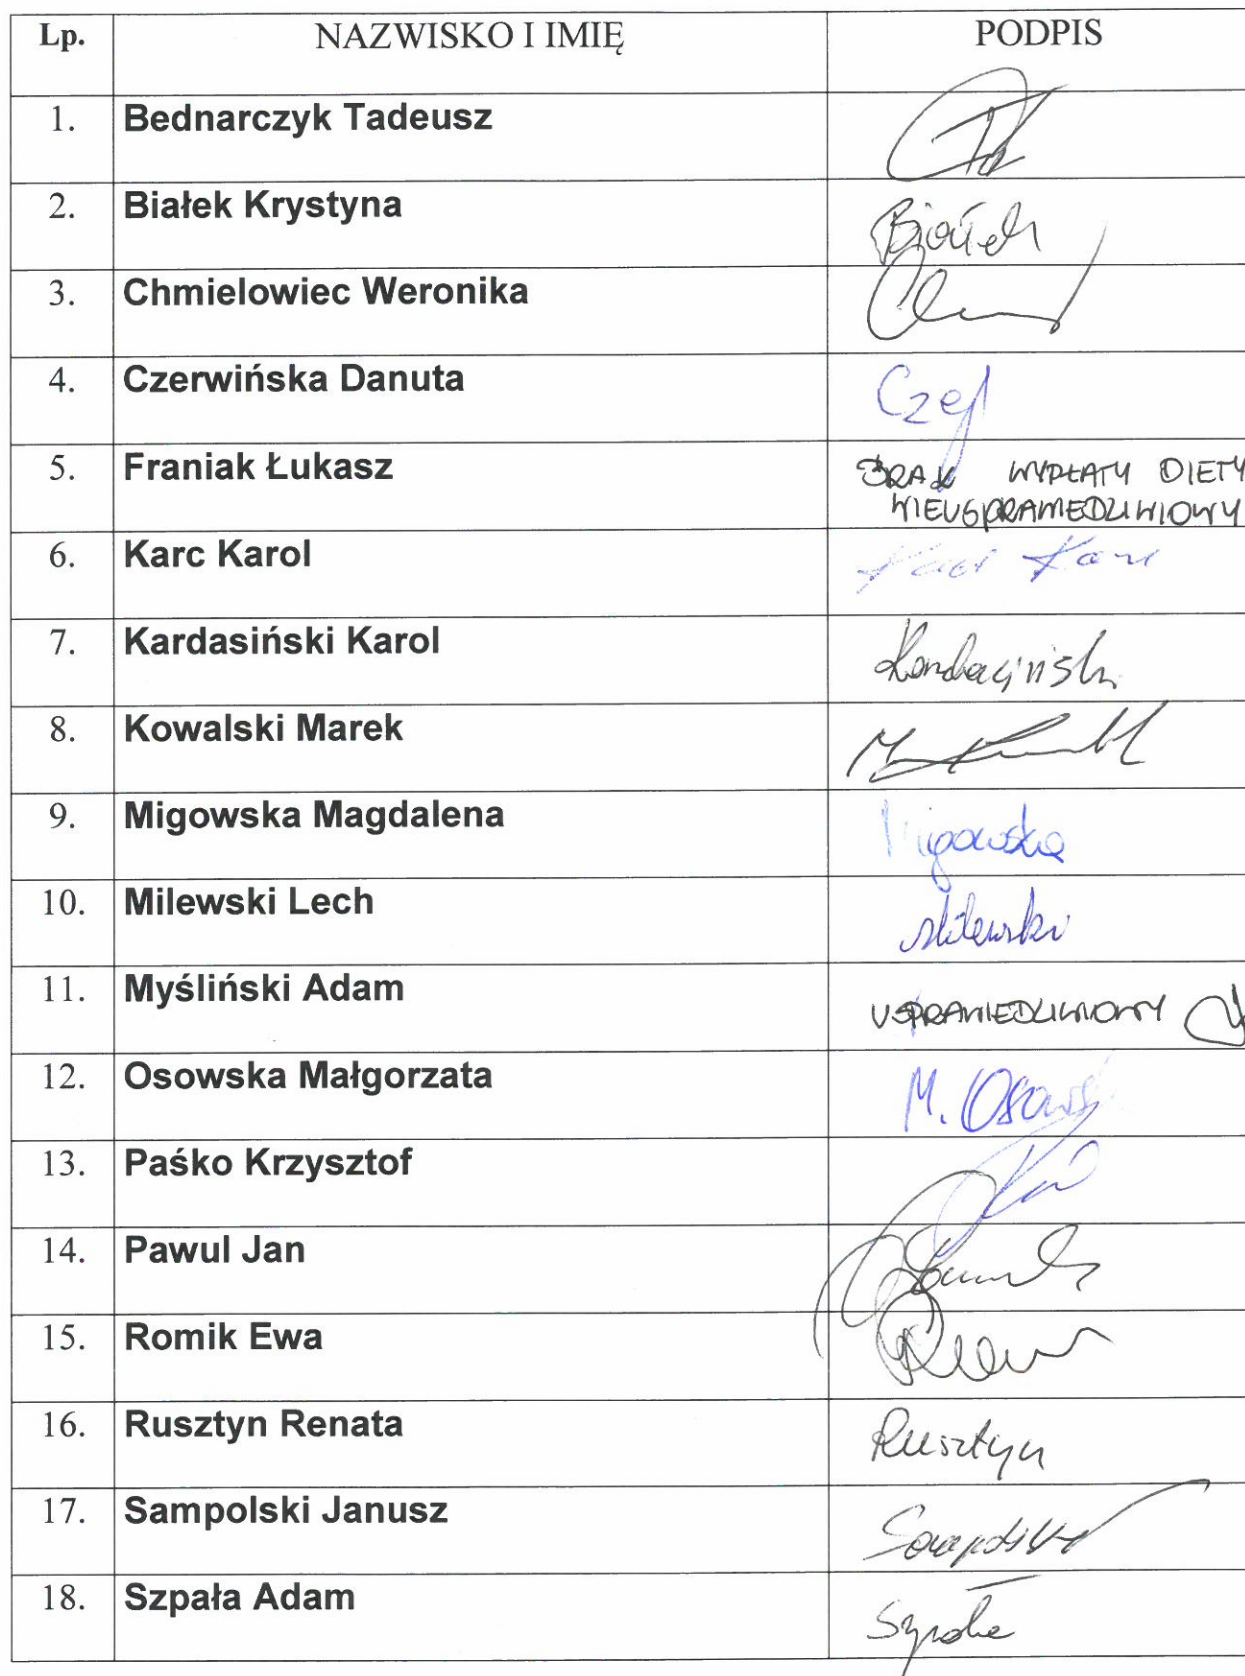 Lp. NAZWISKO I IMIĘ PODPIS
1. Bednarczyk Tadeusz
2. Białek Krystyna Białek
3. Chmielowiec Weronika
4. Czerwińska Danuta
5. Franiak Łukasz BRAK WYPŁATY DIETY
NIEUSPRAWIEDLIWIONY
6. Karc Karol Karc Karol
7. Kardasiński Karol Kardasiński
8. Kowalski Marek
9. Migowska Magdalena Migowska
10. Milewski Lech Milewski
11. Myśliński Adam USPRAWIEDLIWIONY
12. Osowska Małgorzata M. Osows
13. Paśko Krzysztof
14. Pawul Jan
15. Romik Ewa
16. Rusztyn Renata Rusztyn
17. Sampolski Janusz Sampolski
18. Szpała Adam Szpała